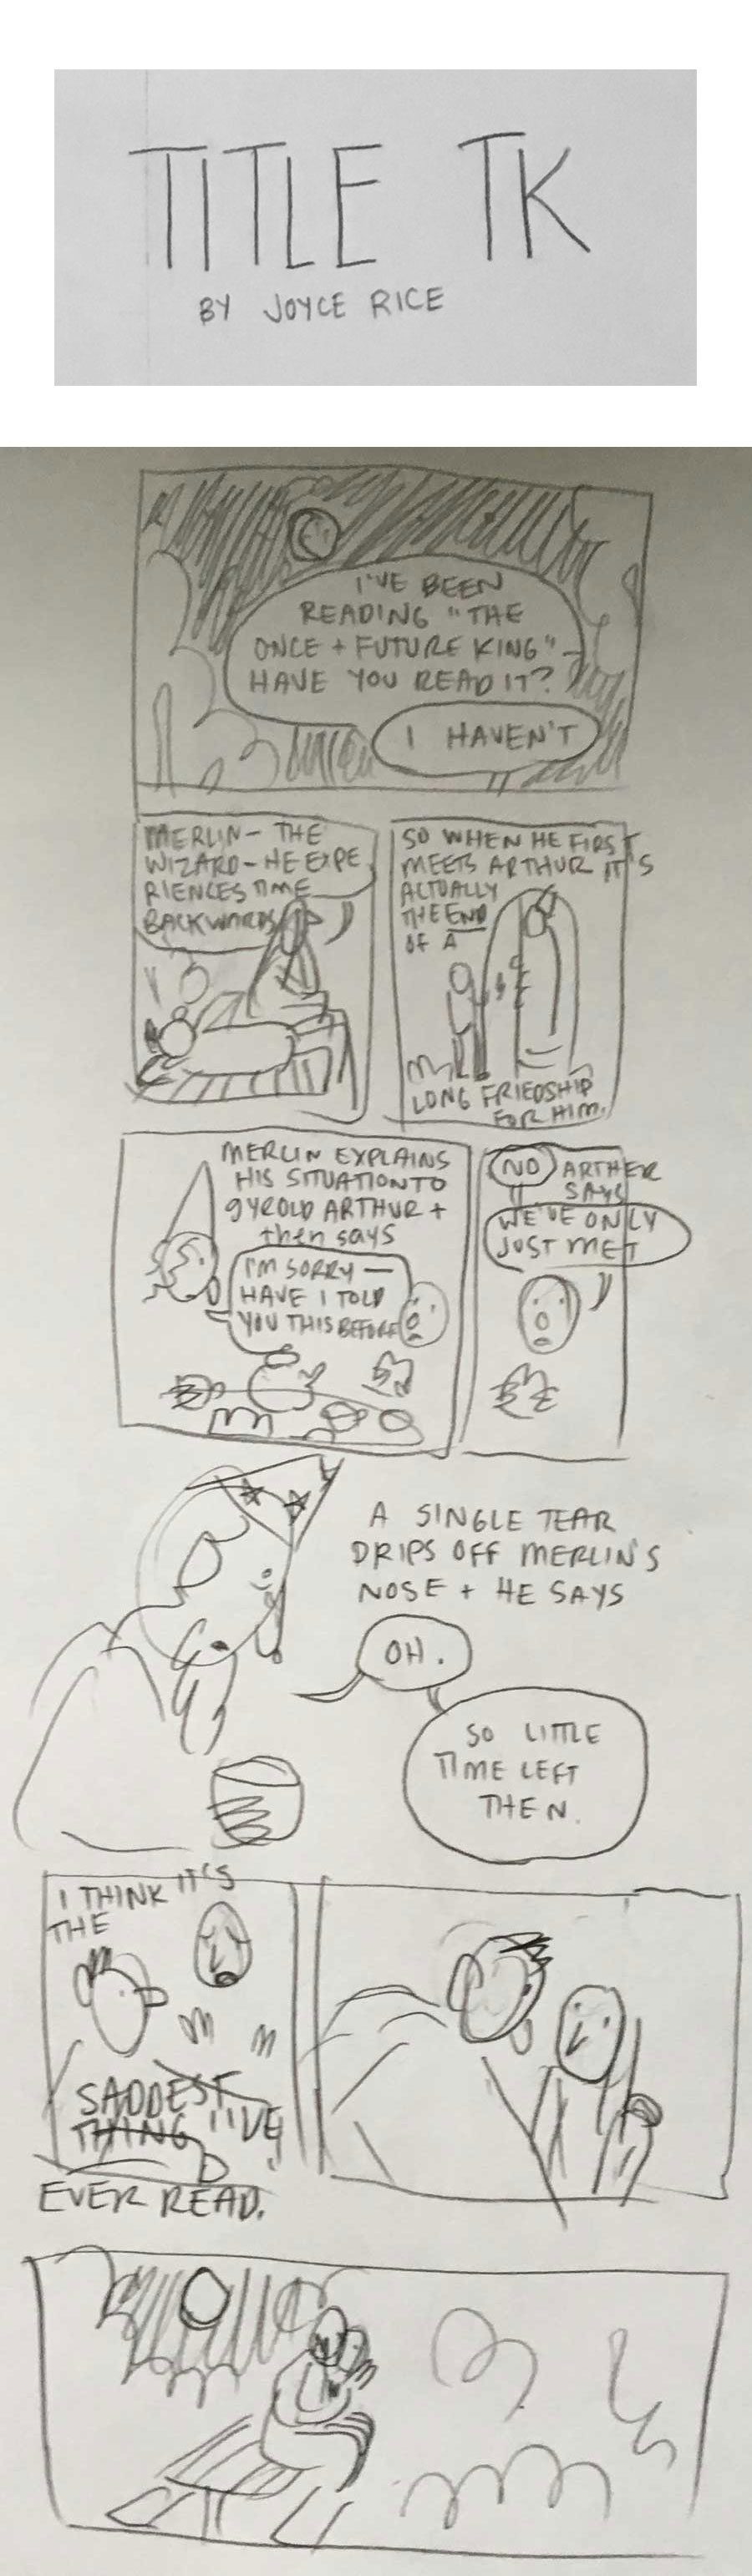 TITLE TK
BY JOYCE RICE
I'VE BEEN
READING "THE
ONCE + FUTURE KING"
HAVE YOU READ IT?
I HAVEN'T
MERLIN - THE
WIZARD - HE EXPE
RIENCES TIME
BACKWARDS
SO WHEN HE FIRST
MEETS ARTHUR IT'S
ACTUALLY
THE END
OF A
LONG FRIEDSHIP
FOR HIM.
MERLIN EXPLAINS
HIS SITUATION TO
9YROLD ARTHUR +
then says
I'M SORRY —
HAVE I TOLD
YOU THIS BEFORE
NO ARTHER
SAYS
WE'VE ONLY
JUST MET
A SINGLE TEAR
DRIPS OFF MERLIN'S
NOSE + HE SAYS
OH.
SO LITTLE
TIME LEFT
THEN.
I THINK IT'S
THE
SADDEST
THING I'VE
EVER READ.